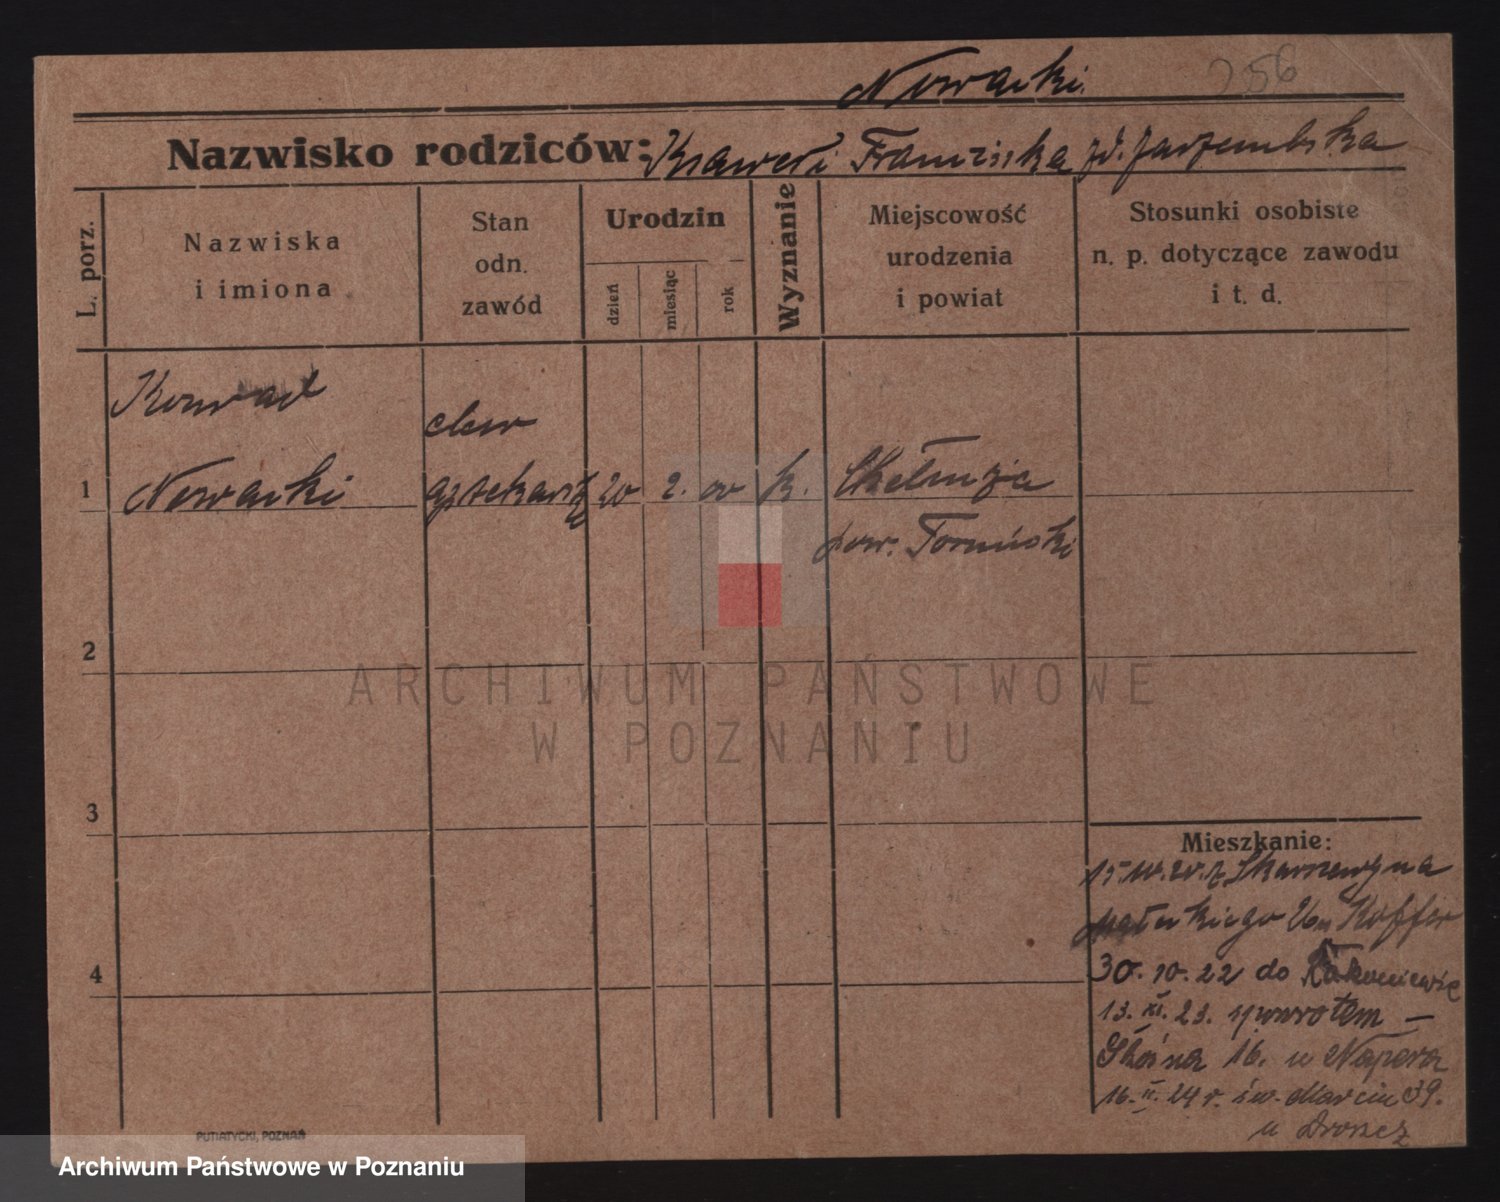 Nowacki.
256
Nazwisko rodziców: Ksawery i Franciszka zd. Jarzembska
L. porz.
Nazwiska
i imiona
Stan
odn.
zawód
Urodzin
dzień
miesiąc
rok
Wyznanie
Miejscowość
urodzenia
i powiat
Stosunki osobiste
n. p. dotyczące zawodu
i t. d.
Konrad
elew
1 Nowacki aptekarski 20 2. 00 k. Chełmża
pow. Toruński
2
3
4
ARCHIWUM PAŃSTWOWE
W POZNANIU
Mieszkanie:
15.10.20. z Skarszewy na
Małeckiego
30.10.22 do Rakoniewic
13. XI. 23. spowrotem —
Głośna 16. u Napera
16. II. 24 r. św. Marcin 39.
u
PUTIATYCKI, POZNAŃ
Archiwum Państwowe w Poznaniu